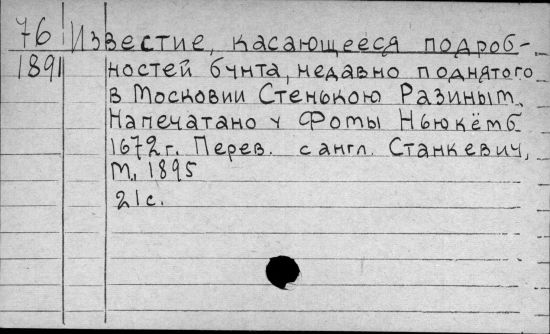 76 Известие, касающееся подроб-
1891 ностей бунта, недавно поднятого
в Московии Стенькою Разиным.
Напечатано у Фоты Ньюкёмб
1672 г. Перев. с англ. Станкевич,
М., 1895
21с.